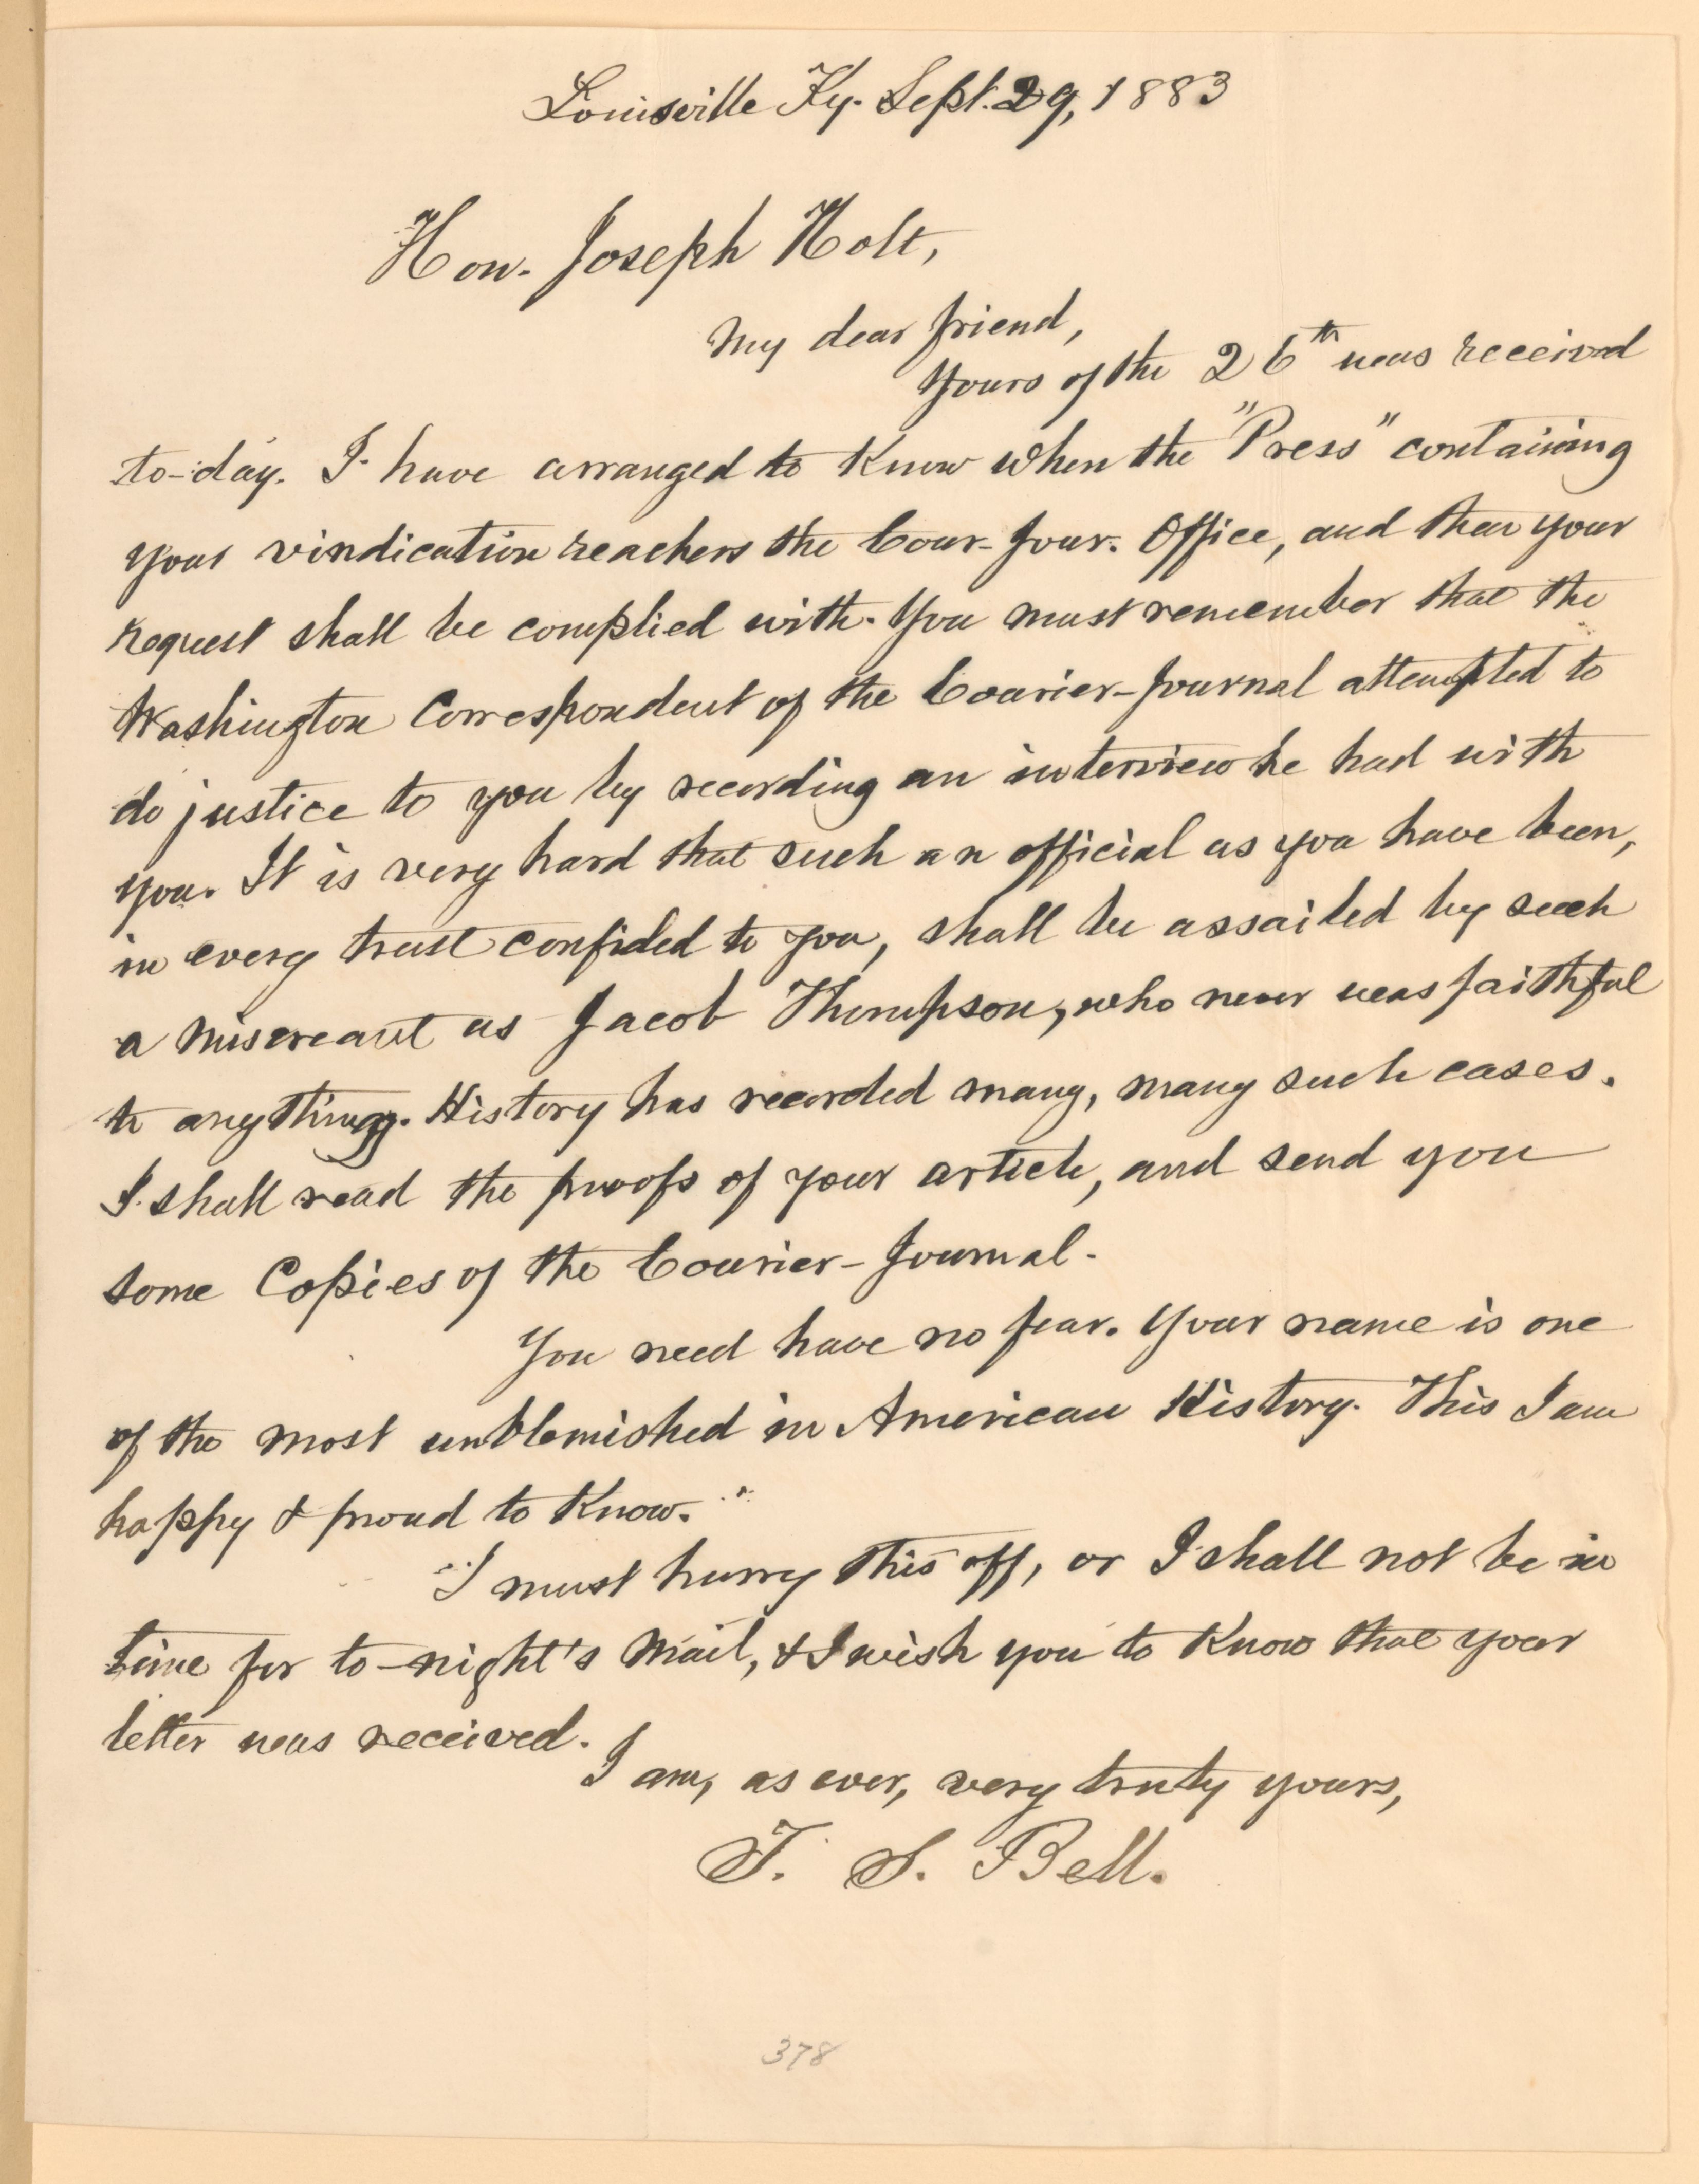 Louisville Ky. Sept. 29, 1883
Hon. Joseph Holt,
My dear friend,
Yours of the 26th was received
to-day. I have arranged to know when the "Press" containing
your vindication reachers the Cour-Jour. Office, and then your
request shall be complied with. You must remember that the
Washington Correspondent of the Courier-Journal attempted to
do justice to you by recording an interview he had with
you. It is very hard that such an official as you have been,
in every trust confided to you, shall be assailed by such
a miscreant as Jacob Thompson, who never was faithful
to anything. History has recorded many, many such cases.
I shall read the proofs of your article, and send you
some Copies of the Courier-Journal.
You need have no fear. Your name is one
of the most unblemished in American History. This I am
happy & proud to know.
I must hurry this off, or I shall not be in
time for to-night's mail, & I wish you to know that your
letter was received.
I am, as ever, very truly yours,
T. S. Bell.
378